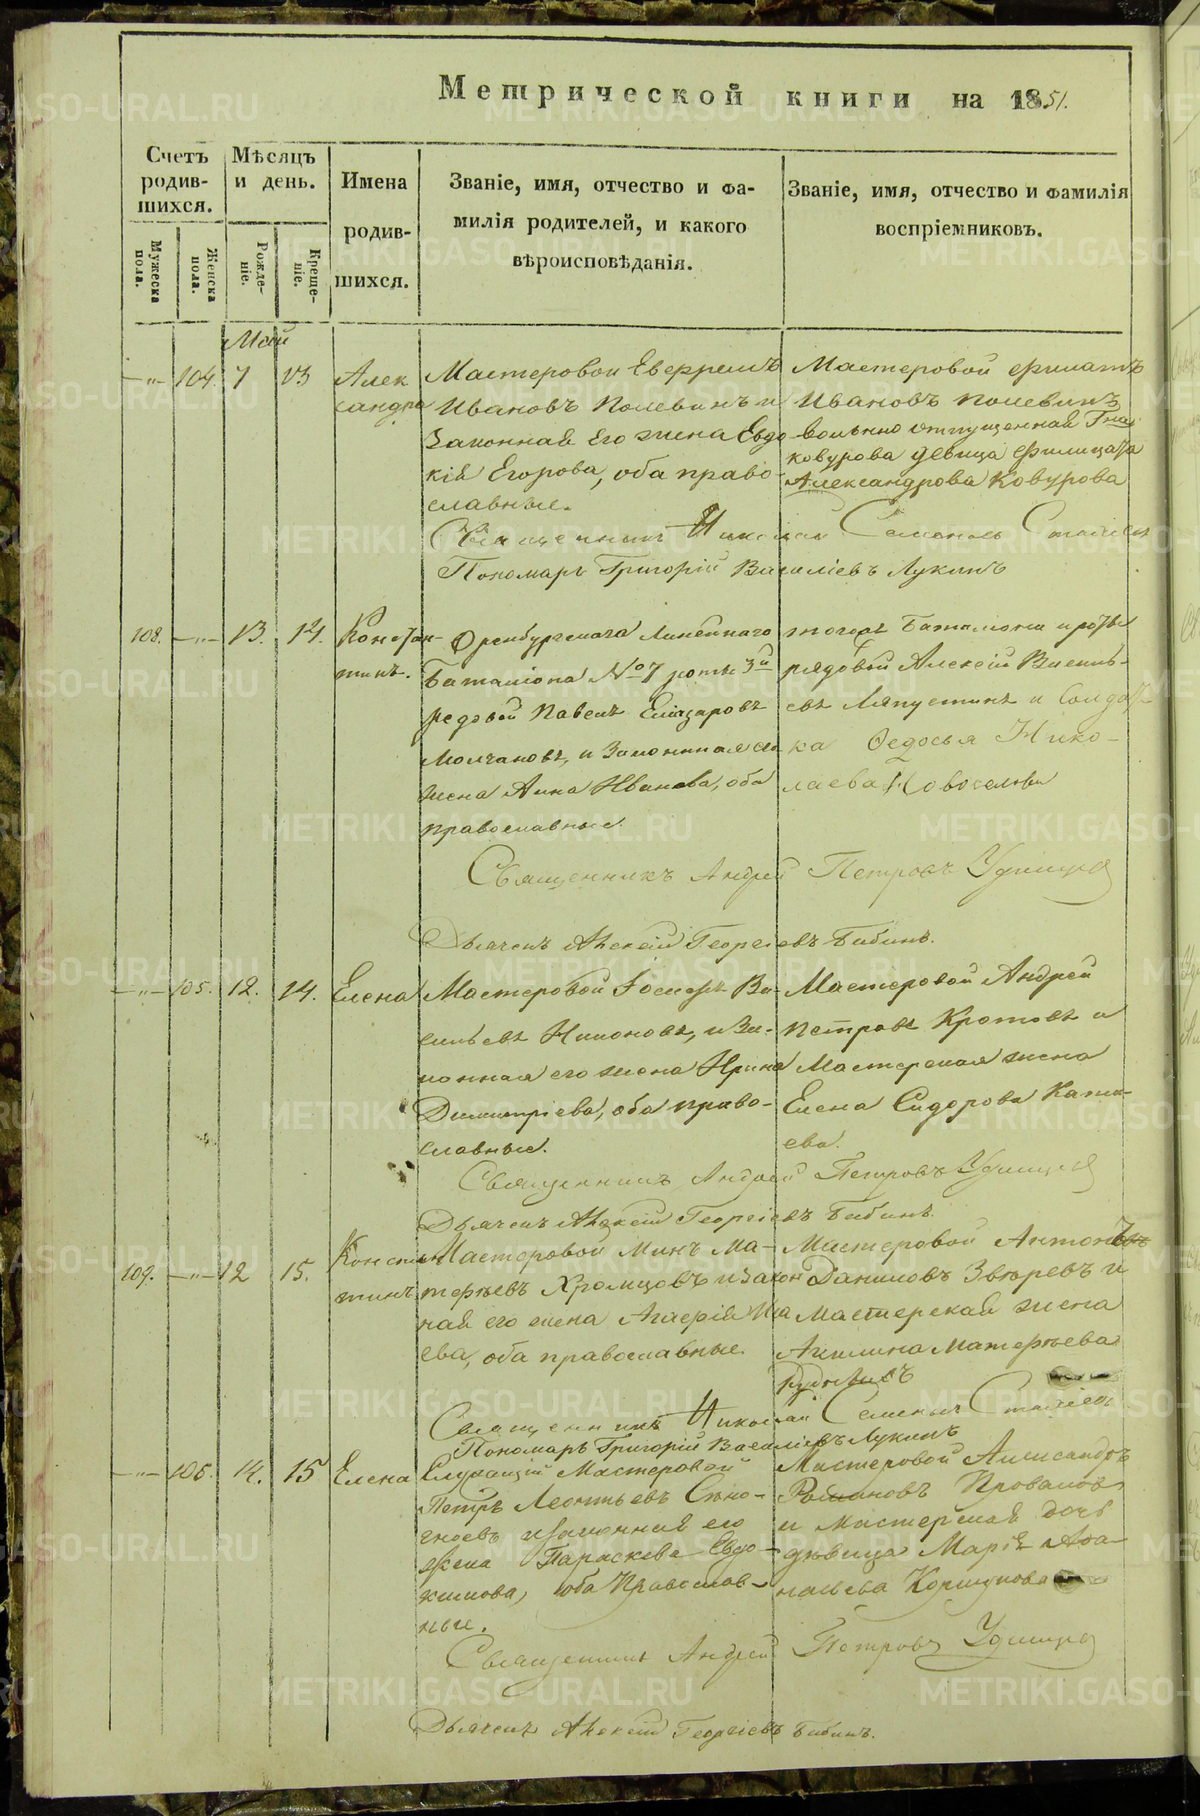 Метрической книги на 1851.
Счетъ родив-шихся.
Мѣсяцъ и день.
Имена родив-шихся.
Званіе, имя, отчество и фа-
милія родителей, и какого
вѣроисповѣданія.
Званіе, имя, отчество и фамилія
воспріемниковъ.
Мужеска пола.
Женска пола.
Рожде-ніе.
Креще-ніе.
Май
—"— 104. 7 13 Алек
сандра
Мастеровой Евфремъ
Ивановъ Полевинъ и
Законная его жена Евдо
кія Егорова, оба право-
славные.
Мастеровой Филатъ
Ивановъ Полевинъ
вольно отпущенная
девица
Александрова Ковурова
Священникъ Николай Семеновъ
Пономарь Григорій Василіевъ Лукинъ
108. —"— 13. 14. Констан-
тинъ.
Оренбургскага Линейнаго
Баталіона №7 роты 3й
редовой Павелъ Елиазаровъ
Молчановъ, и Законная его
жена Анна Иванова, оба
православные.
тогоже Баталіона и роты
рядовой Алексій Василь-
евъ Ляпустинъ и Солдат-
ка Ѳедосья Нико-
лаева Новоселова
Священникъ Андрей Петровъ Удинцов
Дьячекъ Алексій Георгіевъ Бабинъ.
—"— 105. 12. 14. Елена
Мастеровой Іосифъ Ва-
сильевъ Никоновъ, и За-
конная его жена Ирина
Димитріева, оба право-
славные.
Мастеровой Андрей
Петровъ Кротовъ и
Мастерская жена
Елена Сидорова Ката-
ева.
Священникъ Андрей Петровъ Удинцов
Дьячекъ Алексій Георгіевъ Бабинъ.
109. —"— 12 15. Констан
тинъ
Мастеровой Минъ Ма-
терѣевъ Хромцовъ и закон
ная его жена
ева, оба православные.
Мастеровой Антонъ
Даниловъ Звѣревъ и
Мастерская жена
Акилина Матерѣева
Священникъ Николай Семеновъ
Пономарь Григорій Василіевъ Лукинъ
—"— 106. 14. 15 Елена
Служащій Мастеровой
Петръ Леонтьевъ Сѣно-
гноевъ и законная его
жена Параскева Евдо-
кимова, оба Православ-
ные.
Мастеровой Александръ
Романовъ
и Мастерская дочь
дѣвица Марія Аѳа-
насьева Коршунова
Священникъ Андрей Петровъ Удинцов
Дьячекъ Алексій Георгіевъ Бабинъ.
METRIKI.GASO-URAL.RU